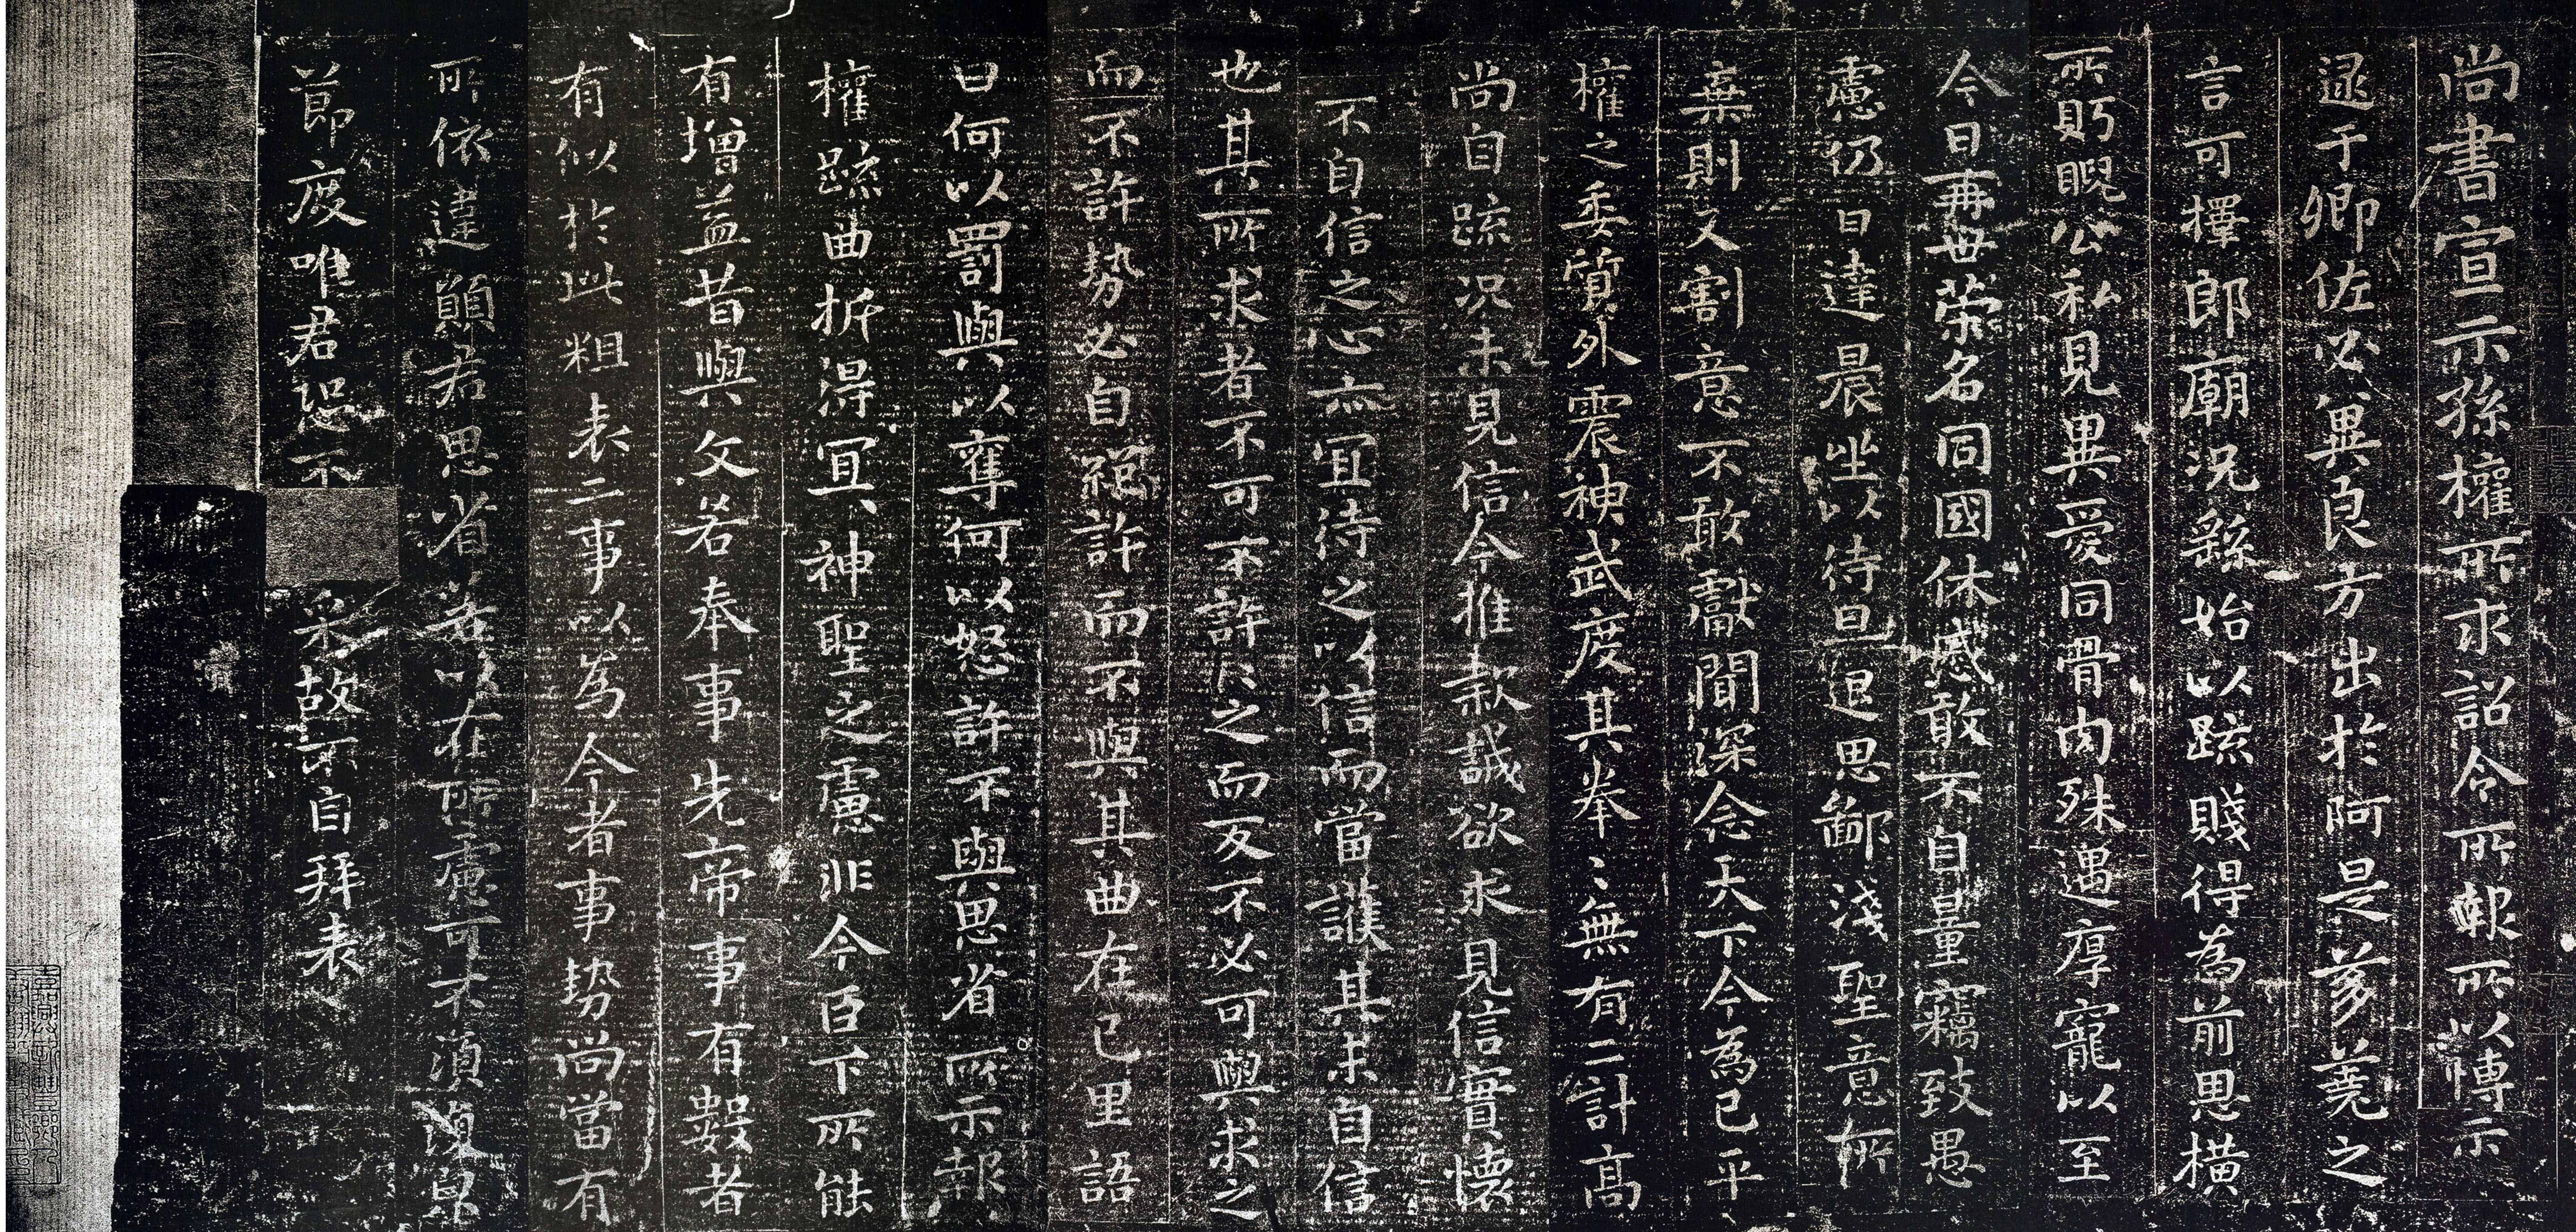 尚書宣示孫權所求詔令所報所以博示
逮于卿佐必冀良方出於阿是芻蕘之
言可擇郎廟況繇始以疏賤得為前恩橫
所盻睨公私見異愛同骨肉殊遇厚寵以至
今日再世榮名同國休慼敢不自量竊致愚
慮仍日達晨坐以待旦退思鄙淺聖意所
棄則又割意不敢獻聞深念天下今為已平
權之委質外震神武度其拳〻無有二計高
尚自疏況未見信今推款誠欲求見信實懷
不自信之心亦宜待之以信而當護其未自信
也其所求者不可不許許之而反不必可與求之
而不許勢必自絕許而不與其曲在己里語
曰何以罰與以奪何以怒許不與思省所示報
權疏曲折得宜神聖之慮非今臣下所能
有增益昔與文若奉事先帝事有數者
有似於此粗表二事以為今者事勢尚當有
所依違願君思省若以在所慮可不須復皃
節度唯君恐不
采故不自拜表